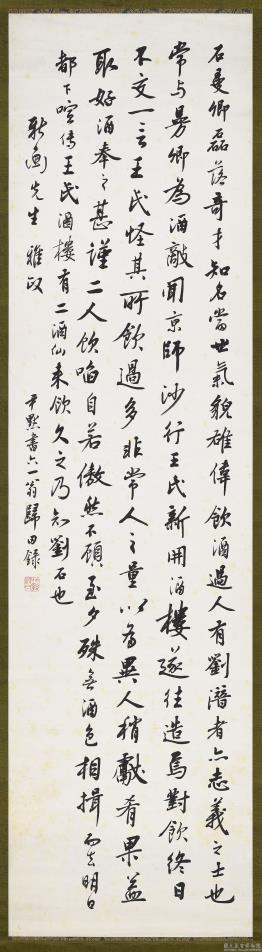 石曼卿磊落奇才知名當世氣貌雄偉飲酒過人有劉潛者亦志義之士也
常与曼卿為酒敵聞京師沙行王氏新開酒樓遂往造焉對飲終日
不交一言王氏怪其所飲過多非常人之量以為異人稍獻肴果益
取好酒奉之甚謹二人飲啗自若傲然不顧至夕殊無酒色相揖而去明日
都下喧傳王氏酒樓有二酒仙來飲久之乃知劉石也
先生雅政
尹默書六一翁歸田錄